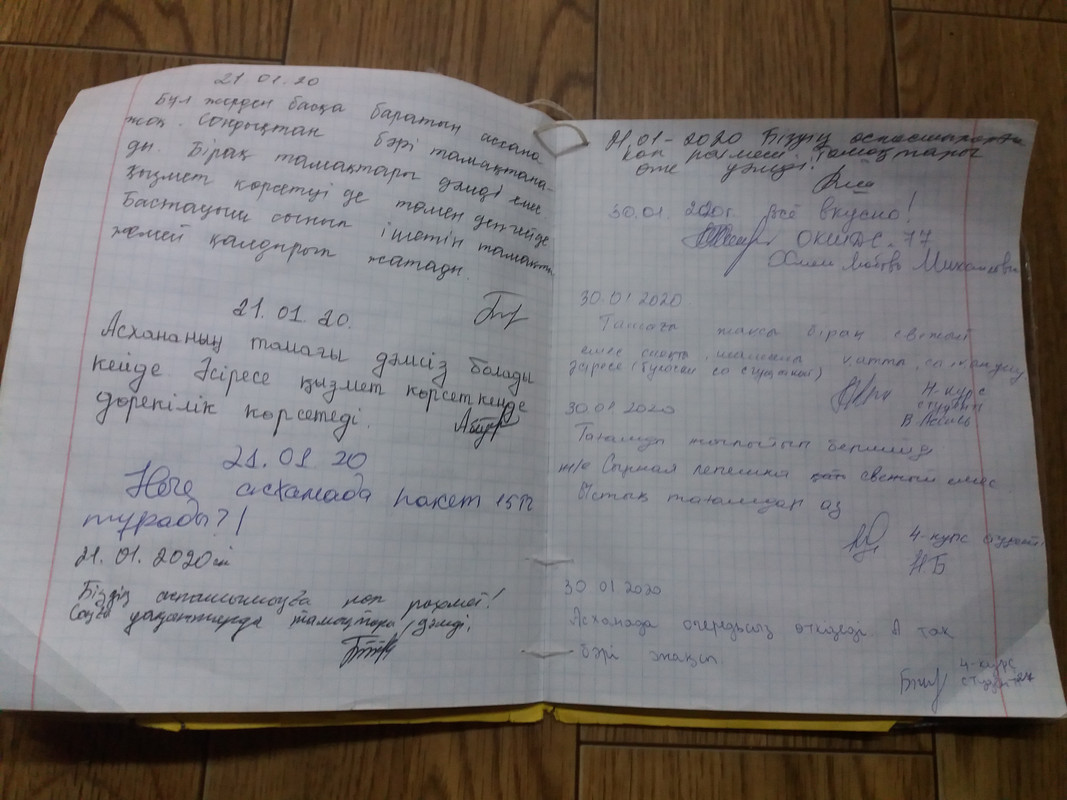 21.01.20
Бұл жерден басқа баратын асхана
жоқ. Сондықтан бәрі тамақтана-
ды. Бірақ тамақтары дәмді емес.
қызмет көрсетуі де төмен деңгейде
Бастауыш сынып ішетін тамақты
жемей қалдырып жатады.
21.01.20.
Асхананың тамағы дәмсіз болады
кейде. Әсіресе қызмет көрсеткенде
дөрекілік көрсетеді.
21.01 20
Неге асханада пакет 15тг
тұрады?!
21.01.2020
Біздің аспазшымызға көп рахмет!
уақытында тамақтары дәмді.
21,01-2020 Біздің аспазшыларға
көп рахмет! Тамақтары
өте дәмді!
30.01.2020г. Всё вкусно!
ОКШДС-77
30.01 2020
Тамағы жақсы бірақ свежий
емес сияқты
әсіресе (булочки со сгущенкой)
курс
студент
30.01 2020
Тағамды жылытып бермейді
Сырная лепешка свежий емес
Ыстық тағамдар аз
4-курс студент.
НБ
30 01 2020
Асханада очередьсіз өткізеді. А так
бәрі жақсы.
4-курс